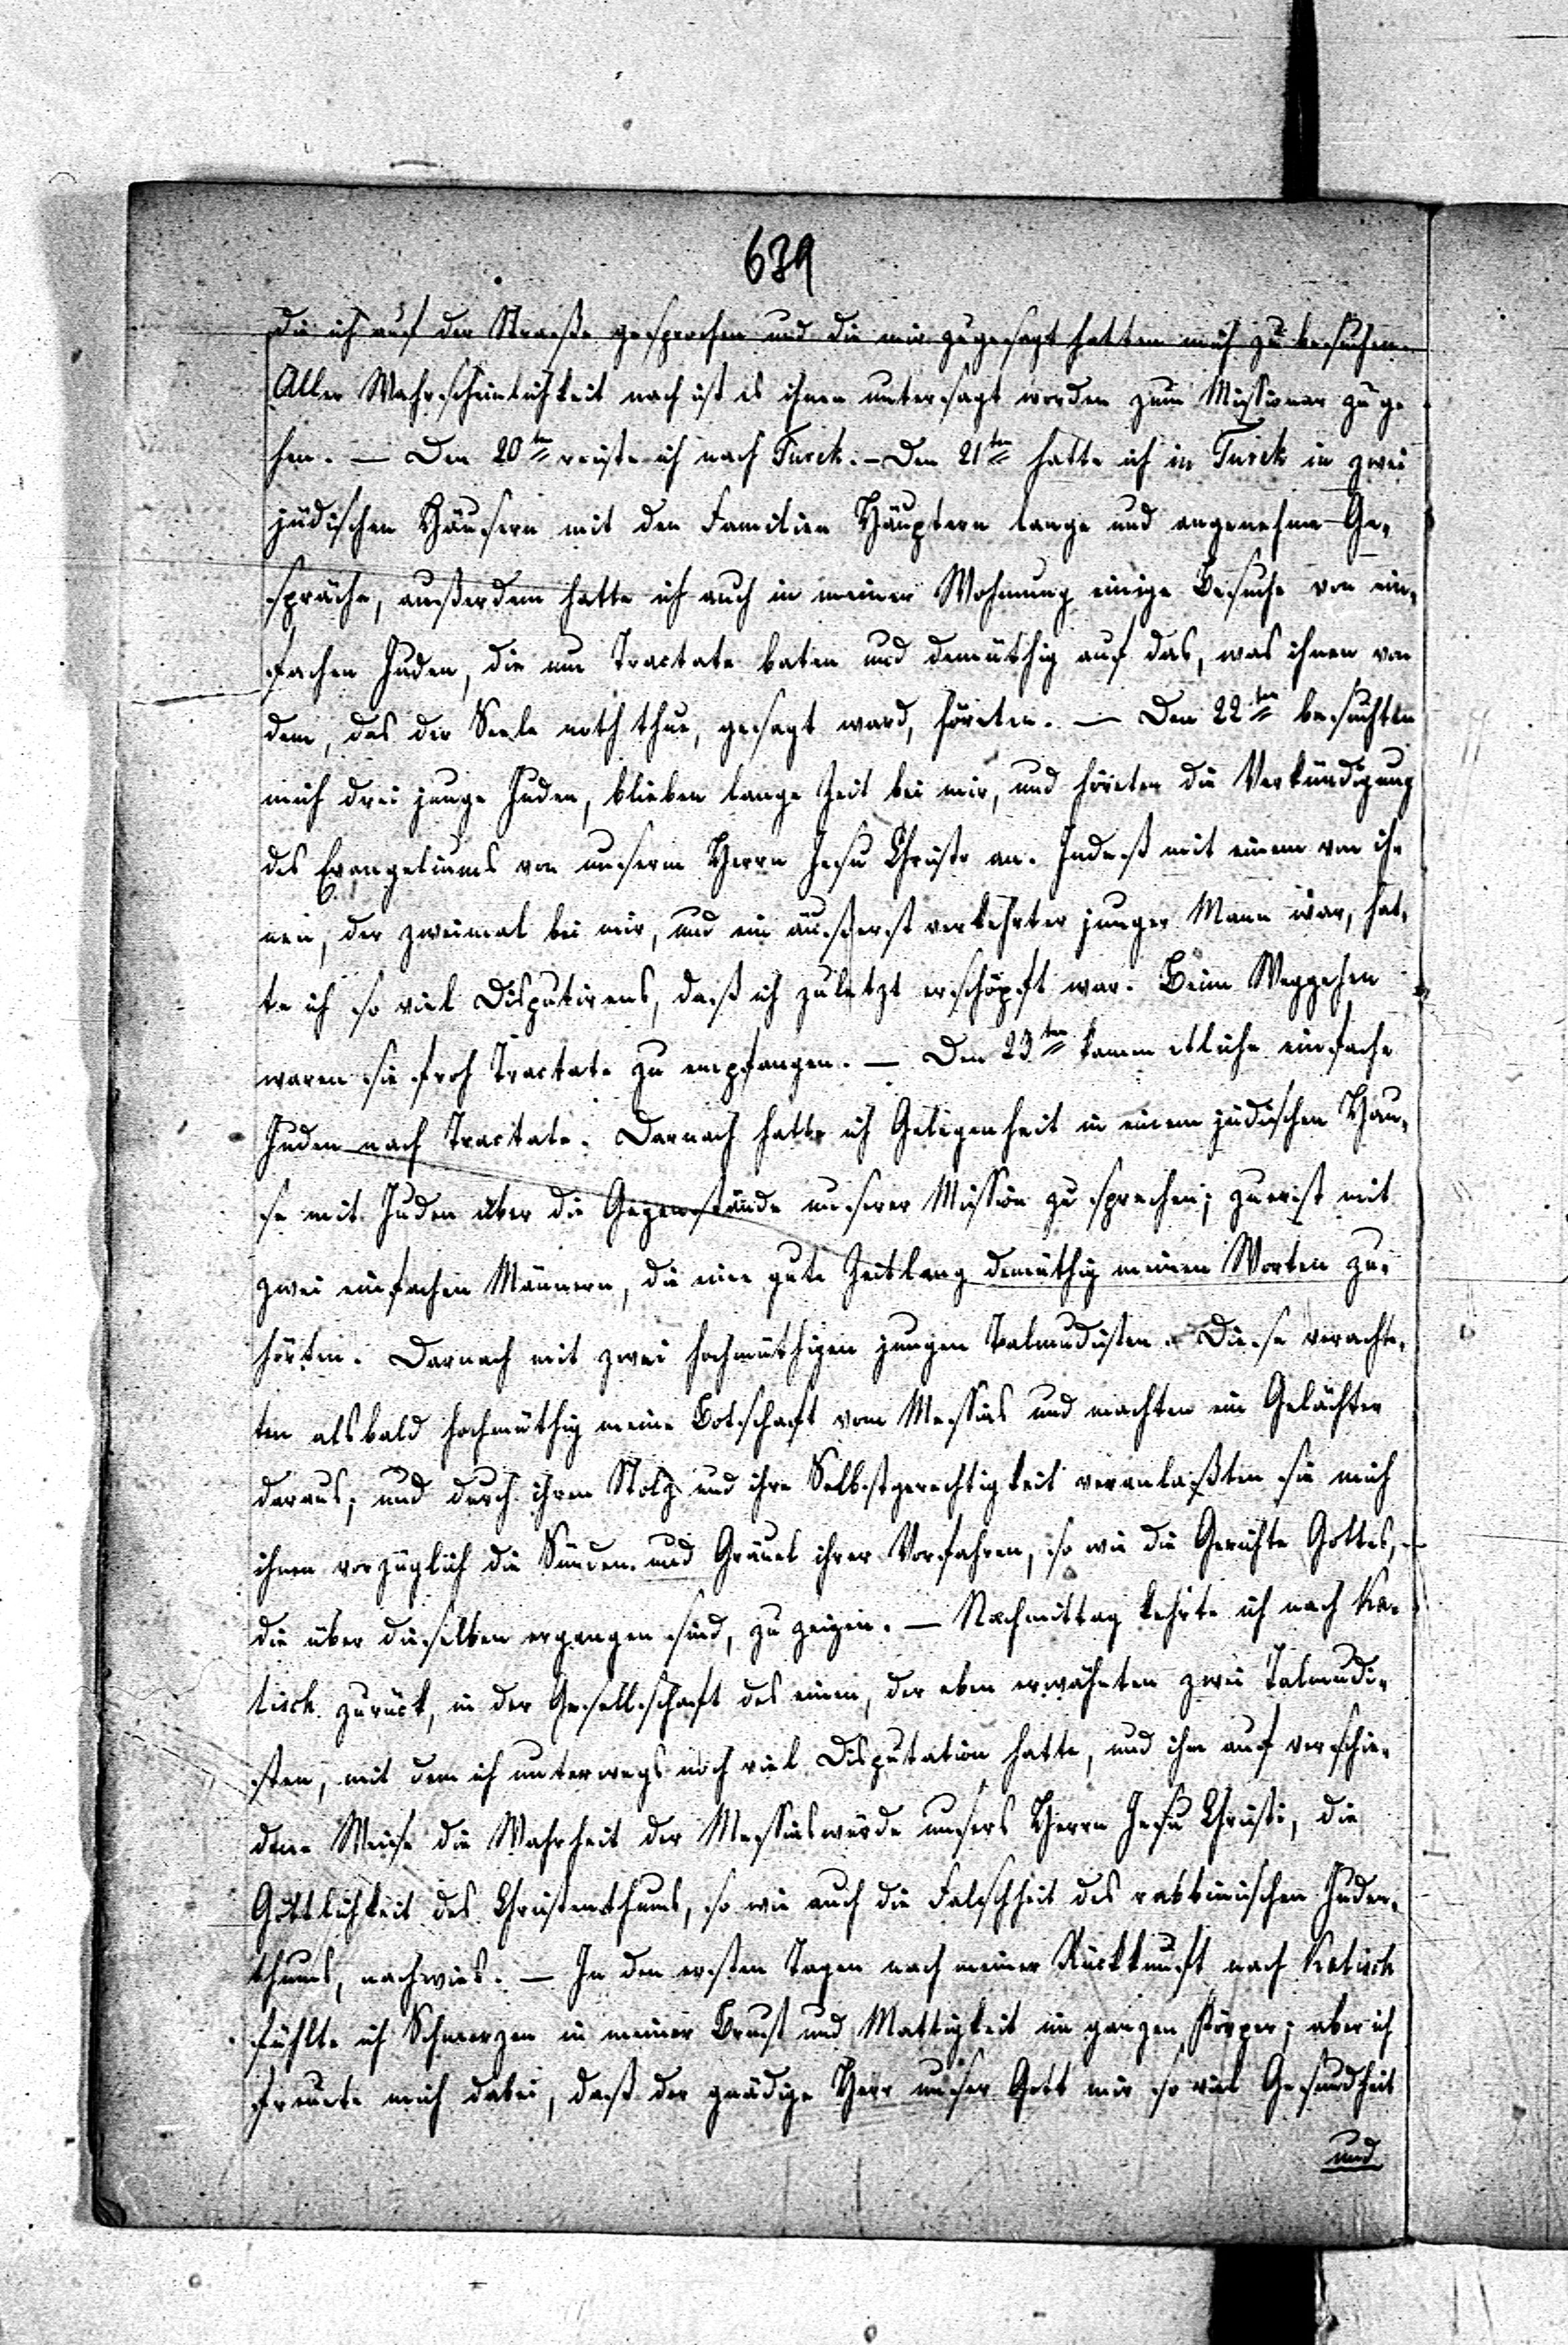 639
die ich auf der Straße gesprochen und die mir zugesagt hatten mich zu besuchen.
Aller Wahrscheinlichkeit nach ist es ihnen untersagt worden zum Missionar zu ge¬
hen. — Den 20ten reiste ich nach Turek. – Den 21ten hatte ich in Turek in zwei
jüdischen Häusern mit den Familien Häuptern lange und angenehme Ge¬
spräche, außerdem hatte ich auch in meiner Wohnung einige Besuche von ein¬
fachen Juden, die um Tractate baten und demüthig auf das, was ihnen von
dem, das der Seele noth thue, gesagt ward, höreten. — Den 22ten besuchten
mich drei junge Juden, blieben lange Zeit bei mir, und höreten die Verkündigung
des Evangeliums von unserm Herrn Jesu Christo an. Indeß mit einem von ih¬
nen, der zweimal bei mir, und ein äußerst verkehrter junger Mann war, hat¬
te ich so viel Disputirens, daß ich zuletzt erschöpft war. Beim Weggehen
waren sie froh Tractate zu empfangen. — Den 23ten kamen etliche einfache
Juden nach Tractate. Darnach hatte ich Gelegenheit in einem jüdischen Hau¬
se mit Juden über die Gegenstände unserer Mission zu sprechen; zuerst mit
zwei einfachen Männern, die eine gute Zeitlang demüthig meinen Worten zu¬
hörten. Darnach mit zwei hochmüthigen jungen Talmudisten. Diese verachte¬
ten alsbald hochmüthig meine Botschaft vom Messias und machten ein Gelächter
daraus; und durch ihren Stolz und ihre Selbstgerechtigkeit veranlaßten sie mich
ihnen vorzüglich die Sünden und Gräuel ihrer Vorfahren, so wie die Gerichte Gottes,
die über dieselben ergangen sind, zu zeigen. — Nachmittag kehrte ich nach Ka¬
lisch zurück, in der Gesellschaft des einen, der eben erwähnten zwei Talmudi¬
sten, mit dem ich unterwegs noch viel Disputation hatte, und ihm auf verschie¬
dene Weise die Wahrheit der Messiaswürde unsers Herrn Jesu Christi, die
Göttlichkeit des Christenthums, so wie auch die Falschheit des rabbinischen Juden¬
thums, nachwies. — In den ersten Tagen nach meiner Rückkunft nach Kalisch
fühlte ich Schmerzen in meiner Brust und Mattigkeit im ganzen Körper; aber ich
freuete mich dabei, daß der gnädige Herr unser Gott mir so viel Gesundheit
und